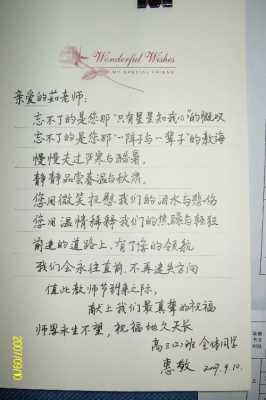 Wonderful Wishes
MY SPECIAL FRIEND
亲爱的茹老师:
忘不了的是您那"只有星星知我心"的慨叹
忘不了的是您那"一阵子与一辈子"的教诲
慢慢走过严寒与酷暑,
静静品尝春温与秋凉。
您用微笑抚慰我们的泪水与悲伤
您用温情稀释我们的焦躁与轻狂
前进的道路上,有了您的领航
我们会永往直前,不再迷失方向
值此教师节到来之际,
献上我们最真挚的祝福
师恩永生不望,祝福地久天长
高三(2)班 全体同学
惠敬 2007.9.10.
2007/09/10